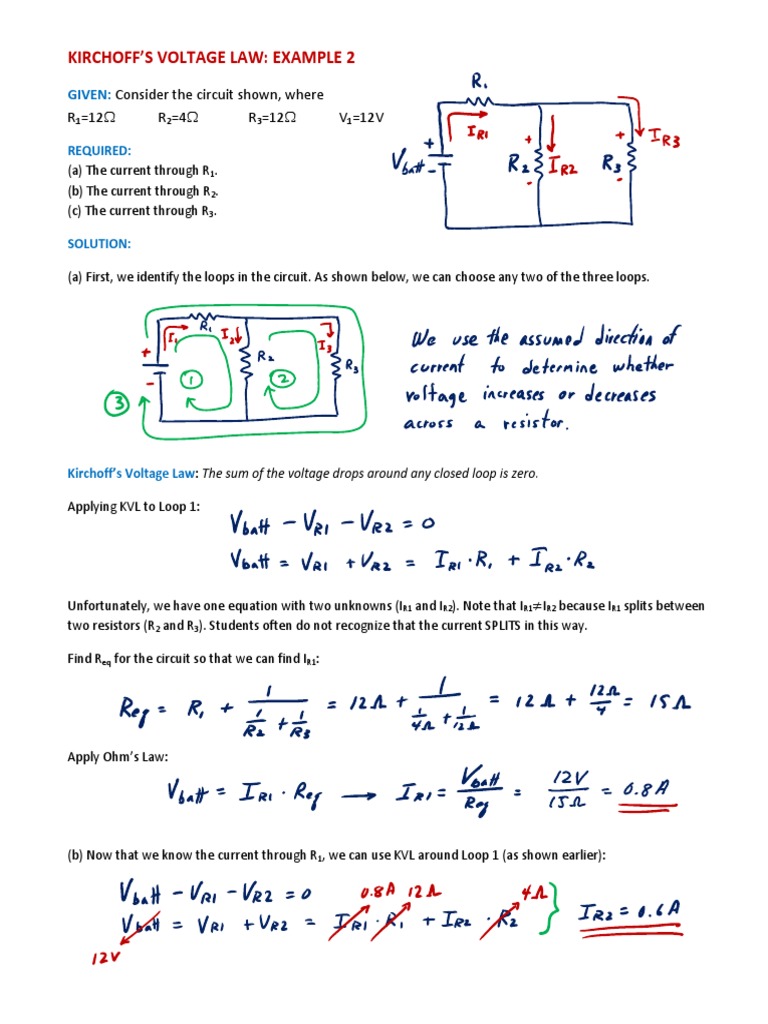 KIRCHOFF'S VOLTAGE LAW: EXAMPLE 2
GIVEN: Consider the circuit shown, where
R₁=12Ω R₂=4Ω R₃=12Ω V₁=12V
REQUIRED:
(a) The current through R₁.
(b) The current through R₂.
(c) The current through R₃.
R₁
I_R1
V_batt
+
-
R₂
+
-
I_R2
R₃
+
-
I_R3
SOLUTION:
(a) First, we identify the loops in the circuit. As shown below, we can choose any two of the three loops.
R₁
I₁
I₂
I₃
+
-
R₂
R₃
1
2
3
We use the assumed direction of
current to determine whether
voltage increases or decreases
across a resistor.
Kirchoff's Voltage Law: The sum of the voltage drops around any closed loop is zero.
Applying KVL to Loop 1:
V_batt - V_R1 - V_R2 = 0
V_batt = V_R1 + V_R2 = I_R1 · R₁ + I_R2 · R₂
Unfortunately, we have one equation with two unknowns (I_R1 and I_R2). Note that I_R1≠I_R2 because I_R1 splits between
two resistors (R₂ and R₃). Students often do not recognize that the current SPLITS in this way.
Find R_eq for the circuit so that we can find I_R1:
Req = R₁ + 1/(1/R2 + 1/R3) = 12Ω + 1/(1/4Ω + 1/12Ω) = 12Ω + 12Ω/4 = 15Ω
Apply Ohm's Law:
V_batt = I_R1 · Req → I_R1 = V_batt/Req = 12V/15Ω = 0.8A
(b) Now that we know the current through R₁, we can use KVL around Loop 1 (as shown earlier):
V_batt - V_R1 - V_R2 = 0
0.8A 12Ω 4Ω
V_batt = V_R1 + V_R2 = I_R1 · R₁ + I_R2 · R₂ } I_R2 = 0.6A
12V